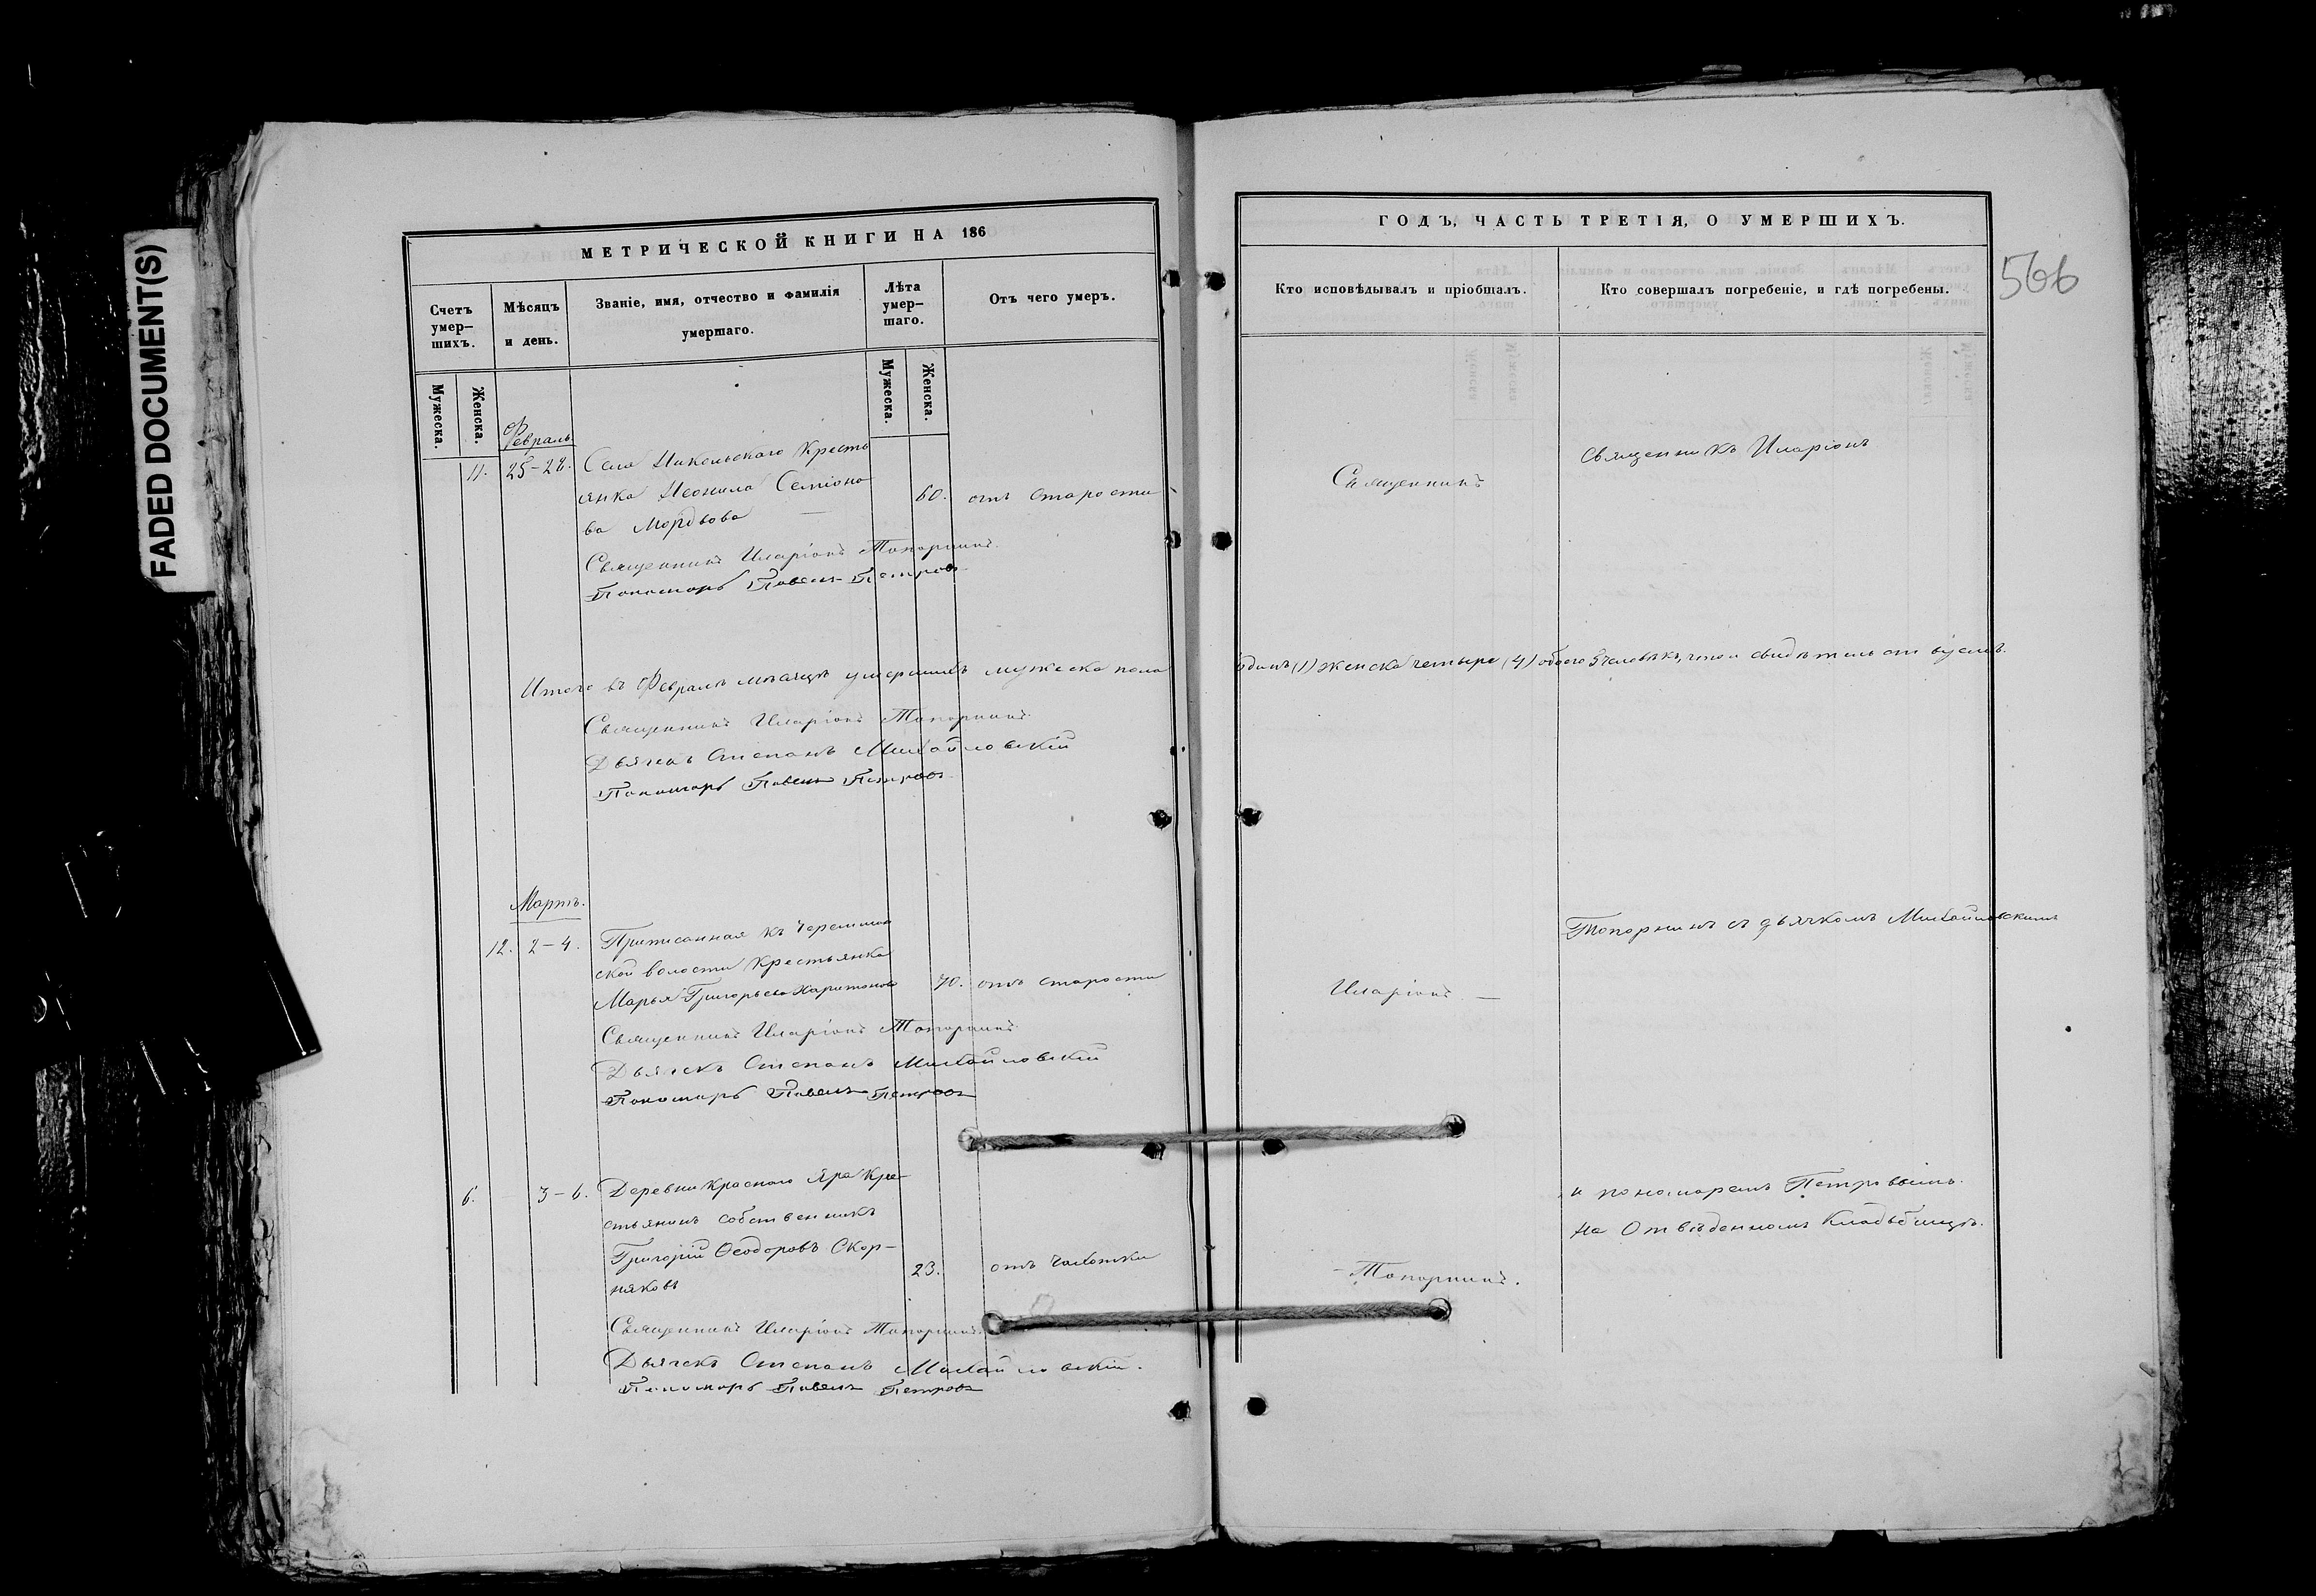 FADED DOCUMENT(S)
МЕТРИЧЕСКОЙ КНИГИ НА 186
Счетъ умер-
шихъ.
Мѣсяцъ
и день.
Званіе, имя, отчество и фамилія
умершаго.
Лѣта
умер-
шаго.
Отъ чего умеръ.
Мужеска.
Женска.
Мужеска.
Женска.
Февраль
11. 25-28. Села Никольскаго Кресть
янка Неонила Семіоно
ва Мордвова 60. отъ старости
Священникъ Иларіонъ Топорнинъ.
Пономарь Павелъ Петровъ
Итого въ Февралѣ мѣсяцѣ умершихъ мужеска пола
Священникъ Иларіонъ Топорнинъ
Дьячекъ Степанъ Михайловскій
Пономарь Павелъ Петровъ
Мартъ.
12. 2-4. Приписанная къ Черемшан
ской волости Крестьянка
Марья Григорьева Харитонова 70. отъ старости
Священникъ Иларіонъ Топорнинъ
Дьячекъ Степанъ Михайловскій
Пономарь Павелъ Петровъ
6. 3-6. Деревни Краснаго Яра Кре-
стьянинъ собственникъ
Григорій Ѳеодоровъ Скор-
няковъ 23. отъ чахотки
Священникъ Иларіонъ Топорнинъ.
Дьячекъ Степанъ Михайловскій.
Пономарь Павелъ Петровъ
ГОДЪ, ЧАСТЬ ТРЕТІЯ, О УМЕРШИХЪ.
566
Кто исповѣдывалъ и пріобщалъ.
Кто совершалъ погребеніе, и гдѣ погребены.
Священникъ
Священникъ Иларіонъ
одинъ (1) женска четыре (4) обоего 5 человѣкъ, что и свидѣтельствуемъ.
Топорнинъ съ дьячкомъ Михайловскимъ
Иларіонъ
и пономаремъ Петровымъ.
На Отвѣденномъ Кладбищѣ.
Топорнинъ.